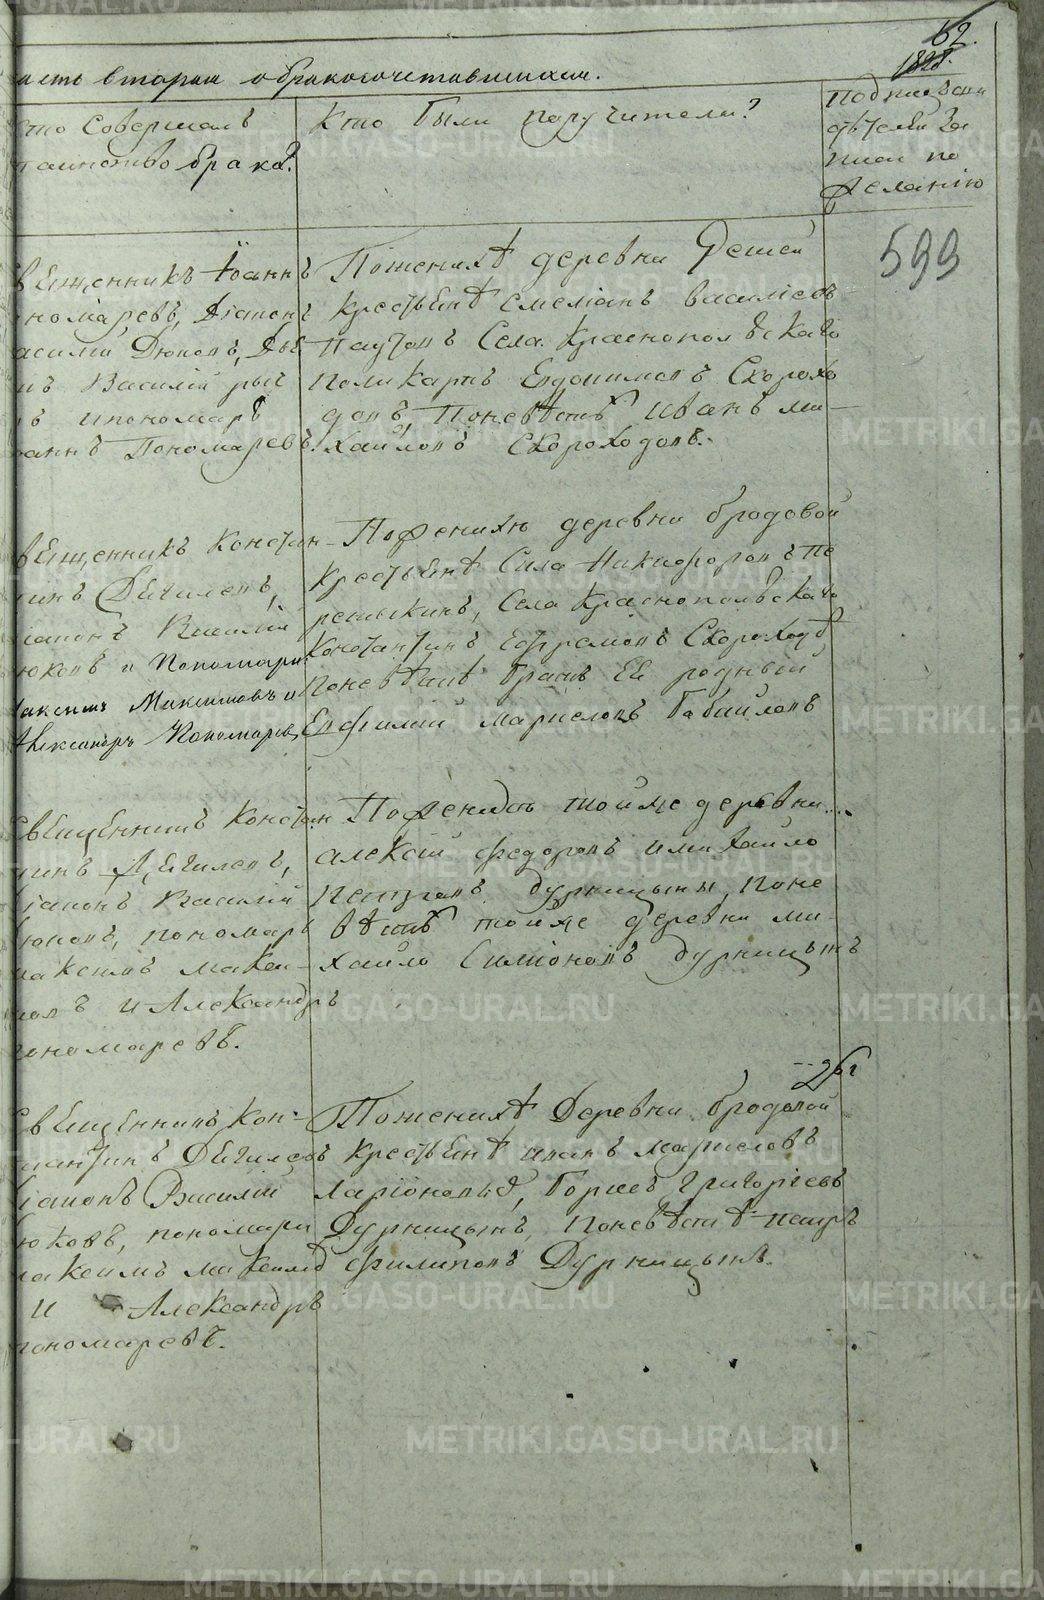 62.
асть вторая о бракосочетавшихся.
то Совершалъ
таинство брака?
Кто были поручители?
Подпись
свидѣтелей за
писи по
желанію
599
вященникъ Іоаннъ
номаревъ, Діаконъ
асилий Дюковъ,
Василий
и пономарь
аннъ Пономаревъ.
По женихѣ деревни
крестьянѣ Емелианъ Василиевъ
Паутовъ Села Краснопольскаго
Поликарпъ Евдокимовъ Скорохо
довъ, По невѣстѣ Иванъ Ми-
хайловъ Скороходовъ.
вященникъ Констан-
тинъ Дягилевъ,
діаконъ Василий
юковъ и Пономари
аксимъ Максимовъ и
Александръ Пономаревъ
По женихѣ деревни бродовой
крестьянѣ Сила Никифоровъ Пе
решкинъ, Села Краснопольскаго
Константинъ Ефремовъ Скороходов
По невѣстѣ братъ Ея родный
Евфимий Маркеловъ Бабайловъ
Священникъ Констан
тинъ Дягилевъ,
діаконъ Василий
юковъ, пономарь
максимъ макси-
мовъ и Александръ
пономаревъ.
По женихѣ той же деревни
алексѣй федоровъ и михайло
петровъ Дурницыны, По не
вѣстѣ той же деревни ми-
хайло Симіоновъ Дурницынъ
Священникъ Кон-
стантинъ Дягилевъ
діаконъ Василий
юковъ, пономари
максимъ максимов
и Александръ
пономаревъ.
По женихѣ Деревни бродовой
крестьянѣ иванъ маркеловъ
Ларіоновыхъ, Борисъ Григорьевъ
Дурницынъ, По невѣстѣ петръ
филиповъ Дурницынъ.
METRIKI.GASO-URAL.RU